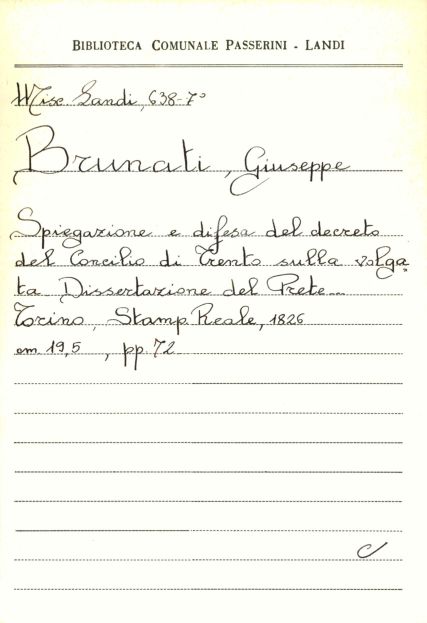 BIBLIOTECA COMUNALE PASSERINI - LANDI
Misc. Landi, 638-7°
Brunati, Giuseppe
Spiegazione e difesa del decreto
del Concilio di Trento sulla volga
ta Dissertazione del Prete...
Torino, Stamp. Reale, 1826
cm. 19,5 , pp. 72
C